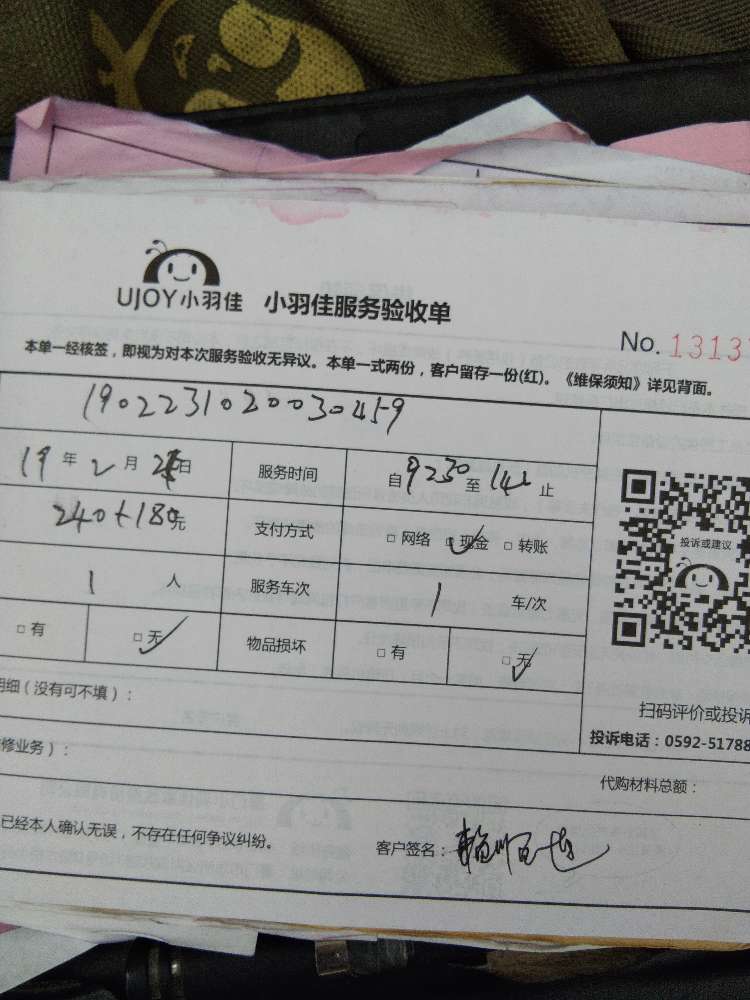 UJOY小羽佳 小羽佳服务验收单
No. 13137
本单一经核签，即视为对本次服务验收无异议。本单一式两份，客户留存一份(红)。《维保须知》详见背面。
1902231020030459
19年2月日 服务时间 自9230至14止
240+180元 支付方式 □网络 □现金 □转账
1 人 服务车次 1 车/次
□有 □无 物品损坏 □有 □无
投诉或建议
扫码评价或投诉
投诉电话：0592-51788
明细（没有可不填）：
修业务）：
代购材料总额：
已经本人确认无误，不存在任何争议纠纷。 客户签名：